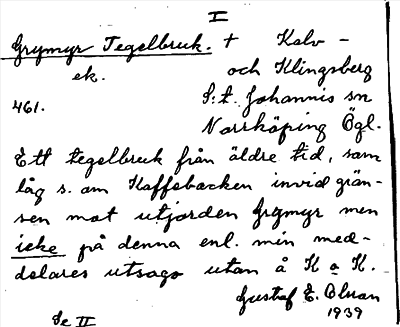 I
Grymyr Tegelbruk. + Kalv -
ek. och Klingsberg
461. S:t. Johannis sn
Norrköping Ögl.
Ett tegelbruk från äldre tid, som
låg s. om Kaffebacken invid grän-
sen mot utjorden Grymyr men
icke på denna enl. min med-
delares utsago utan å K o K.
Gustaf E. Olsson
1939
Se II